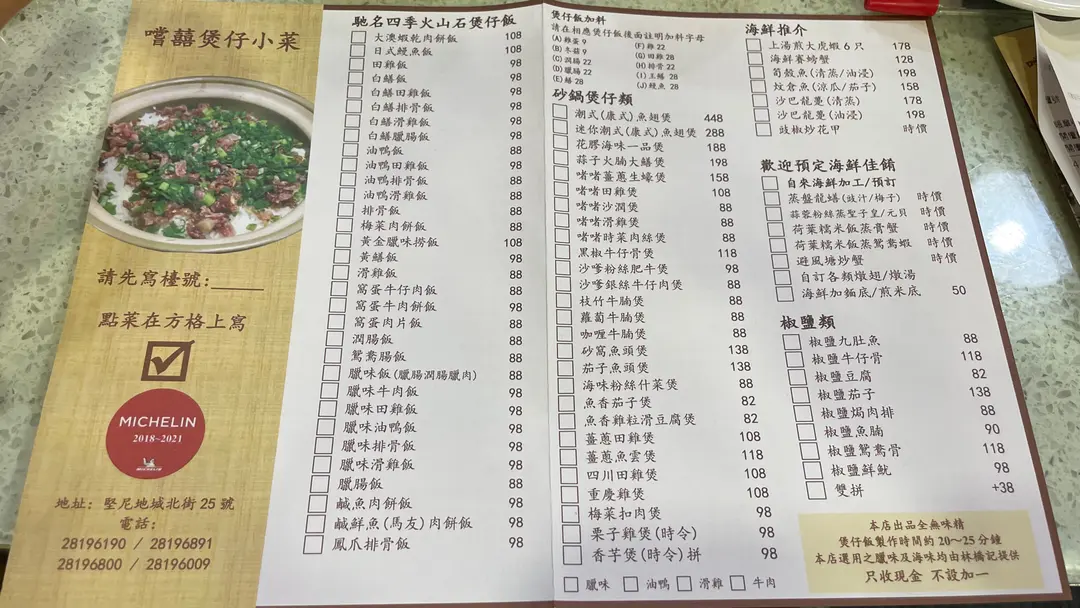 嚐囍煲仔小菜
請先寫檯號:
點菜在方格上寫
MICHELIN
2018~2021
地址: 堅尼地城北街 25 號
電話:
28196190 / 28196891
28196800 / 28196009
馳名四季火山石煲仔飯
大澳蝦乾肉餅飯 108
日式鰻魚飯 108
田雞飯 98
白鱔飯 98
白鱔田雞飯 98
白鱔排骨飯 98
白鱔滑雞飯 98
白鱔臘腸飯 98
油鴨飯 88
油鴨田雞飯 98
油鴨排骨飯 88
油鴨滑雞飯 88
排骨飯 88
梅菜肉餅飯 88
黃金臘味撈飯 108
黃鱔飯 98
滑雞飯 88
窩蛋牛仔肉飯 88
窩蛋牛肉餅飯 98
窩蛋肉片飯 88
潤腸飯 88
鴛鴦腸飯 88
臘味飯 (臘腸潤腸臘肉) 88
臘味牛肉飯 98
臘味田雞飯 98
臘味油鴨飯 98
臘味排骨飯 98
臘味滑雞飯 98
臘腸飯 88
鹹魚肉餅飯 98
鹹鮮魚 (馬友) 肉餅飯 98
鳳爪排骨飯 98
煲仔飯加料
請在相應煲仔飯後面註明加料字母
(A) 雞蛋 9 (F) 雞 22
(B) 冬菇 9 (G) 田雞 28
(C) 潤腸 22 (H) 排骨 22
(D) 臘腸 22 (I) 玉鱔 28
(E) 鱔 28 (J) 鰻魚 28
砂鍋煲仔類
潮式 (康式) 魚翅煲 448
迷你潮式 (康式) 魚翅煲 288
花膠海味一品煲 188
蒜子火腩大鱔煲 198
啫啫薑蔥生蠔煲 158
啫啫田雞煲 108
啫啫沙潤煲 88
啫啫滑雞煲 88
啫啫時菜肉絲煲 88
黑椒牛仔骨煲 118
沙嗲粉絲肥牛煲 98
沙嗲銀絲牛仔肉煲 88
枝竹牛腩煲 88
蘿蔔牛腩煲 88
咖喱牛腩煲 88
砂窩魚頭煲 138
茄子魚頭煲 138
海味粉絲什菜煲 88
魚香茄子煲 82
魚香雞粒滑豆腐煲 82
薑蔥田雞煲 108
薑蔥魚雲煲 118
四川田雞煲 108
重慶雞煲 108
梅菜扣肉煲 98
栗子雞煲 (時令) 98
香芋煲 (時令) 拼 98
臘味 油鴨 滑雞 牛肉
海鮮推介
上湯煎大虎蝦 6 只 178
海鮮賽螃蟹 128
筍殼魚 (清蒸/油浸) 198
坟倉魚 (涼瓜/茄子) 158
沙巴龍躉 (清蒸) 178
沙巴龍躉 (油浸) 198
豉椒炒花甲 時價
歡迎預定海鮮佳餚
自來海鮮加工/預訂
蒸盤龍鱔 (豉汁/梅子) 時價
蒜蓉粉絲蒸聖子皇/元貝 時價
荷葉糯米飯蒸膏蟹 時價
荷葉糯米飯蒸鴛鴦蝦 時價
避風塘炒蟹 時價
自訂各類燉翅/燉湯
海鮮加麵底/煎米底 50
椒鹽類
椒鹽九肚魚 88
椒鹽牛仔骨 118
椒鹽豆腐 82
椒鹽茄子 138
椒鹽焗肉排 88
椒鹽魚腩 90
椒鹽鴛鴦骨 118
椒鹽鮮魷 98
雙拼 +38
本店出品全無味精
煲仔飯製作時間約 20~25 分鐘
本店選用之臘味及海味均由林橋記提供
只收現金 不設加一